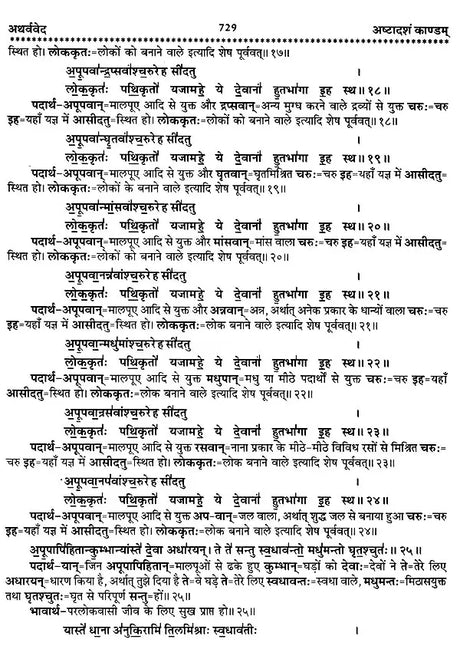 अथर्ववेद 729 अष्टादशं काण्डम्
स्थित हो। लोककृतः=लोकों को बनाने वाले इत्यादि शेष पूर्ववत्॥१७॥
अ॒पू॒पवा॑न्द्र॒प्सवां॑श्च॒रुरेह सी॑दतु ।
लो॒क॒कृतः॑ पथि॒कृतो॑ यजामहे॒ ये दे॒वानां॑ हु॒तभा॑गा इ॒ह स्थ॥१८॥
पदार्थ-अपूपवान्=मालपूए आदि से युक्त और द्रप्सवान्=अन्य मुग्ध करने वाले द्रव्यों से युक्त चरुः=चरु
इह=यहाँ यज्ञ में आसीदतु=स्थित हो। लोककृतः=लोकों को बनाने वाले इत्यादि शेष पूर्ववत्॥१८॥
अ॒पू॒पवा॑न्घृ॒तवां॑श्च॒रुरेह सी॑दतु ।
लो॒क॒कृतः॑ पथि॒कृतो॑ यजामहे॒ ये दे॒वानां॑ हु॒तभा॑गा इ॒ह स्थ॥१९॥
पदार्थ-अपूपवान्=मालपूए आदि से युक्त और घृतवान्=घृतमिश्रित चरुः=चरु इह=यहाँ यज्ञ में आसीदतु=
स्थित हो। लोककृतः=लोकों के बनाने वाले इत्यादि शेष पूर्ववत्॥१९॥
अ॒पू॒पवा॑न्मां॒सवां॑श्च॒रुरेह सी॑दतु ।
लो॒क॒कृतः॑ पथि॒कृतो॑ यजामहे॒ ये दे॒वानां॑ हु॒तभा॑गा इ॒ह स्थ॥२०॥
पदार्थ-अपूपवान्=मालपूए आदि से युक्त और मांसवान्=मांस वाला चरुः=चरु इह=यहाँ यज्ञ में आसीदतु=स्थित
हो। लोककृतः=लोकों को बनाने वाले इत्यादि शेष पूर्ववत्॥२०॥
अ॒पू॒पवा॒नन्न॑वांश्च॒रुरेह सी॑दतु ।
लो॒क॒कृतः॑ पथि॒कृतो॑ यजामहे॒ ये दे॒वानां॑ हु॒तभा॑गा इ॒ह स्थ॥२१॥
पदार्थ-अपूपवान्=मालपूए आदि से युक्त और अन्नवान्=अन्न, अर्थात् अनेक प्रकार के धान्यों वाला चरुः=चरु
इह=यहाँ यज्ञ में आसीदतु=स्थित हो। लोककृतः=लोक बनाने वाले इत्यादि शेष पूर्ववत्॥२१॥
अ॒पू॒पवा॒न्मधु॑मांश्च॒रुरेह सी॑दतु ।
लो॒क॒कृतः॑ पथि॒कृतो॑ यजामहे॒ ये दे॒वानां॑ हु॒तभा॑गा इ॒ह स्थ॥२२॥
पदार्थ-अपूपवान्=मालपूए आदि से युक्त मधुपान्=मधु या मीठे पदार्थों से युक्त चरुः=चरु इह=यहाँ
आसीदतु=स्थित हो। लोककृतः=लोक बनाने वाले इत्यादि शेष पूर्ववत्॥२२॥
अ॒पू॒पवा॒न्रस॑वांश्च॒रुरेह सी॑दतु ।
लो॒क॒कृतः॑ पथि॒कृतो॑ यजामहे॒ ये दे॒वानां॑ हु॒तभा॑गा इ॒ह स्थ॥२३॥
पदार्थ-अपूपवान्=मालपूए आदि से युक्त रसवान्=नाना प्रकार के मीठे-मीठे विविध रसों से मिश्रित चरुः=
चरु इह=यहाँ यज्ञ में आसीदतु=स्थित हो। लोककृतः=लोक बनाने वाले इत्यादि शेष पूर्ववत्॥२३॥
अ॒पू॒पवा॒नप॑वांश्च॒रुरेह सी॑दतु ।
लो॒क॒कृतः॑ पथि॒कृतो॑ यजामहे॒ ये दे॒वानां॑ हु॒तभा॑गा इ॒ह स्थ॥२४॥
पदार्थ-अपूपवान्=मालपूए आदि से युक्त अप-वान्=जल वाला, अर्थात् शुद्ध जल से बनाया हुआ चरुः=
चरु इह=यहाँ यज्ञ में आसीदतु=स्थित हो। लोककृतः=लोक बनाने वाले इत्यादि शेष पूर्ववत्॥२४॥
अ॒पू॒पापि॑हितान्कु॒म्भान्यांस्ते॑ दे॒वा अधा॑रयन्। ते ते॑ सन्तु स्व॒धाव॑न्तो॒ मधु॑मन्तो घृत॒श्चुतः॑॥२५॥
पदार्थ-यान्=जिन अपूपापिहितान्=मालपूओं से ढके हुए कुम्भान्=घड़ों को देवाः=देवों ने ते=तेरे लिए
अधारयन्=धारण किया है, अर्थात् तुझे दिया है ते=वे घड़े ते=तेरे लिए स्वधावन्तः=स्वधा वाले, मधुमन्तः=मिठासयुक्त
तथा घृतश्चुतः=घृत से परिपूर्ण सन्तु=हों॥२५॥
भावार्थ-परलोकवासी जीव के लिए सुख प्राप्त हो॥२५॥
यास्ते॑ धा॒ना अ॑नुकि॒रामि॑ ति॒लमि॑श्राः स्व॒धाव॑तीः ।